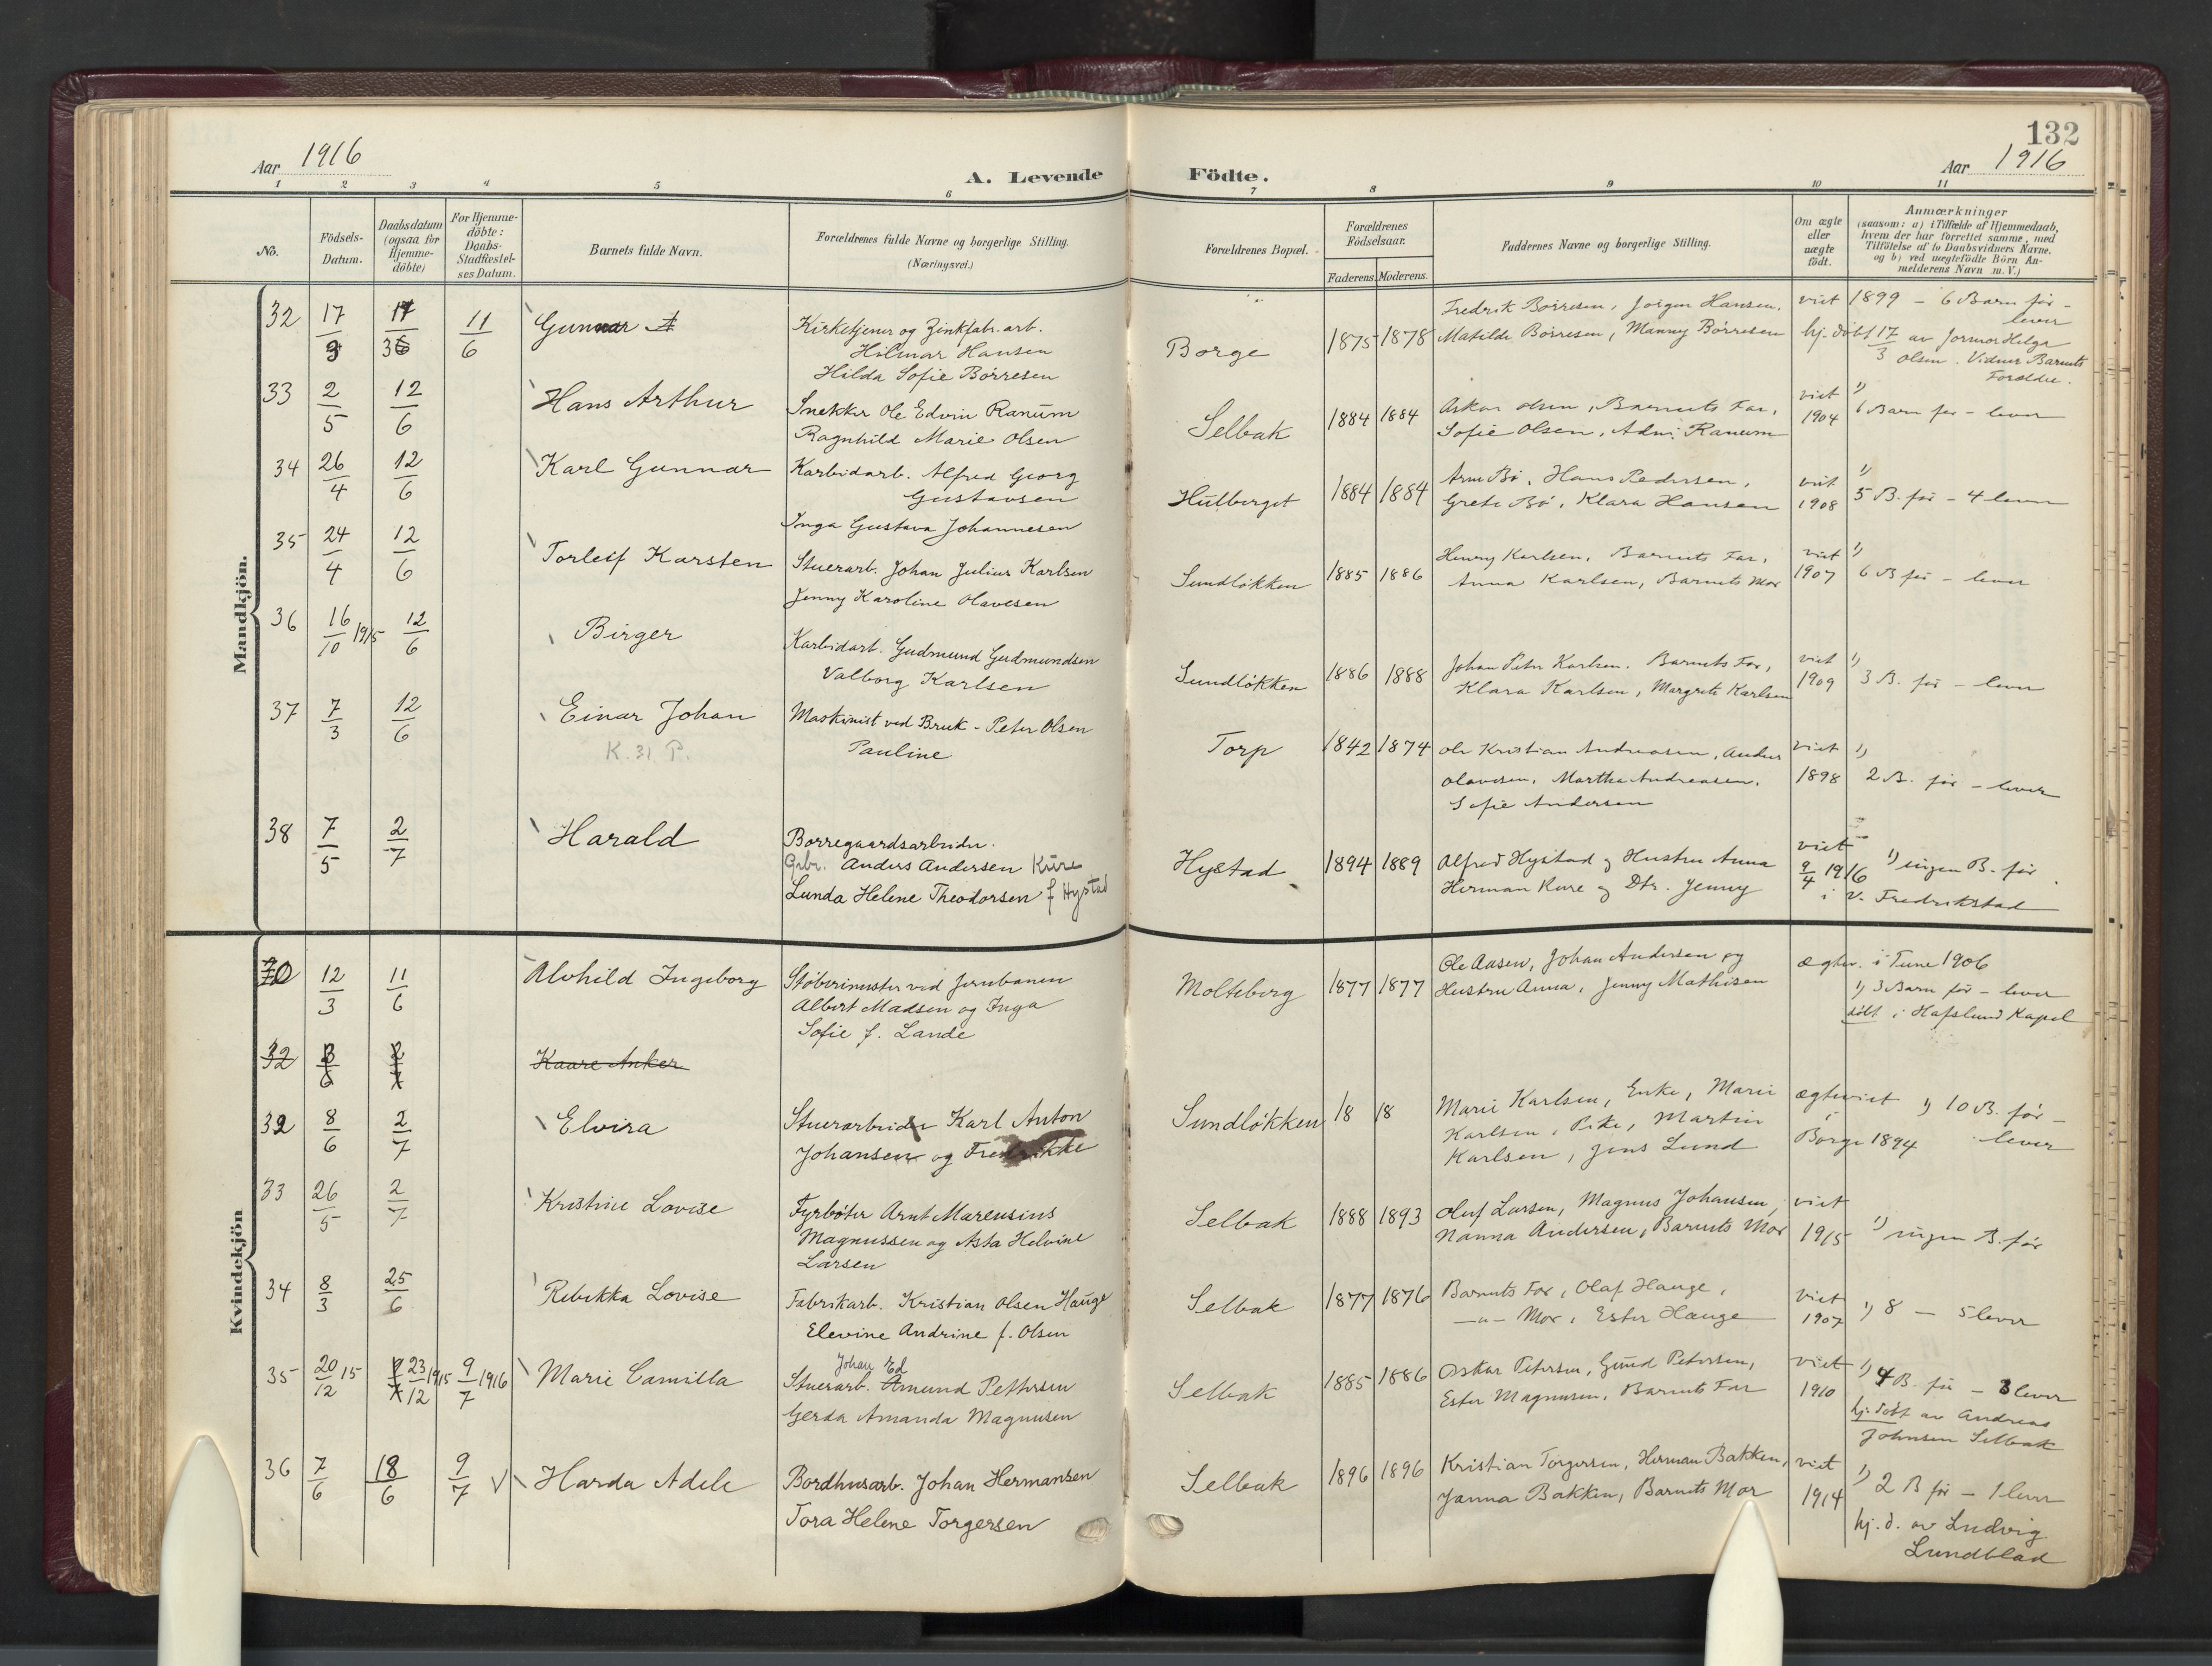 132
Aar 1916
A. Levende Födte.
Aar 1916
1 2 3 4 5 6 7 8 9 10 11
No.
Födsels-
Datum.
Daabsdatum
(ogsaa for
Hjemme-
döbte)
For Hjemme-
döbte:
Daabs-
Stadfæstel-
ses Datum.
Barnets fulde Navn.
Forældrenes fulde Navne og borgerlige Stilling.
(Næringsvei.)
Forældrenes Bopæl.
Forældrenes
Födselsaar.
Faderens. Moderens.
Faddernes Navne og borgerlige Stilling.
Om ægte
eller
uægte
födt.
Anmærkninger
(saasom: a) i Tilfælde af Hjemmedaab,
hvem der har forrettet samme, med
Tilföielse af to Daabsvidners Navne,
og b) ved uægtefödte Börn An-
melderens Navn m. V.)
Mandkjön.
32 17/3 11/6 Gunnar
Kirketjener og Zinkfab. arb.
Hilmar Hansen
Hilda Sofie Börresen
Borge 1875 1878
Fredrik Börresen, Jörgen Hansen,
Matilde Börresen, Manny Börresen
viet 1899 – 6 Barn før –
lever
hj. döbt 17/3 av Jormor Helga
Olsen. Vidner Barnets
Forældre.
33 2/5 12/6 Hans Arthur
Snekker Ole Edvin Ranum
Ragnhild Marie Olsen
Selbak 1884 1884
Askar Olsen, Barnets Far,
Sofie Olsen, Adni Ranum
viet
1904
1) 6 Barn før – lever
34 26/4 12/6 Karl Gunnar
Karbidarb. Alfred Georg
Gustavsen
Inga Gustava Johannesen
Hulberget 1884 1884
Arne Bö, Hans Pedersen,
Grete Bö, Klara Hansen
viet
1908
1) 5 B. før – 4 lever
35 24/4 12/6 Torleif Karsten
Stuerarb. Johan Julius Karlsen
Jenny Karoline Olavesen
Sundlökken 1885 1886
Henry Karlsen, Barnets Far,
Anna Karlsen, Barnets Mor
viet
1907
1) 6 B før – lever
36 16/10 1915 12/6 Birger
Karbidarb. Gudmund Gudmundsen
Valborg Karlsen
Sundlökken 1886 1888
Johan Peter Karlsen. Barnets Far,
Klara Karlsen, Margrete Karlsen
viet
1909
1) 3 B. før – lever
37 7/3 12/6 Einar Johan
K. 31 P.
Maskinist ved Bruk – Peter Olsen
Pauline
Torp 1842 1874
Ole Kristian Andreasen, Anders
Olavesen, Marthe Andreasen,
Sofie Andersen
viet
1898
1) 2 B. før – lever
38 7/5 2/7 Harald
Borregaardsarbeider.
Anders Andersen Kure
Lunda Helene Theodorsen f Hystad
Hystad 1894 1889
Alfred Hystad og Hustru Anna
Herman Kure og Dtr. Jenny
viet
9/4 1916
i V. Fredrikstad
1) ingen B. før
Kvindekjön
12/3 11/6 Alvhild Ingeborg
Stöberimester ved Jernbanen
Albert Madsen og Inga
Sofie f. Lande
Molteberg 1877 1877
Ole Aasen, Johan Andersen og
Hustru Anna, Jenny Mathisen
ægtev. i Tune 1906
1) 3 Barn før – lever
döbt i Hafslund Kapel
32 Kaare Anker
32 8/6 2/7 Elvira
Stuerarbeider Karl Anton
Johansen og Fredrikke
Sundlökken 18 18
Marie Karlsen, Enke, Marie
Karlsen, Pike, Martin
Karlsen, Jens Lund
ægteviet i
Borge 1894
1) 10 B. før –
lever
33 26/5 2/7 Kristine Lovise
Fyrböter Arnt Marensius
Magnussen og Asta Helvine
Larsen
Selbak 1888 1893
Oluf Larsen, Magnus Johansen,
Nanna Andersen, Barnets Mor
viet
1915
1) ingen B. før
34 8/3 25/6 Rebekka Lovise
Fabrikarb. Kristian Olsen Hauge
Elevine Andrine f. Olsen
Selbak 1877 1876
Barnets Far, Olaf Hauge,
– „ – Mor, Ester Hauge
viet
1907
1) 8 – 5 lever
35 20/12 15 23/12 1915 9/7 1916 Marie Camilla
Johan Ed
Stuerarb. Amund Pettersen
Gerda Amanda Magnusen
Selbak 1885 1886
Oskar Petersen, Gerud Petersen,
Ester Magnusen, Barnets Far
viet
1910
1) 4 B. før – 3 lever
hj. döbt av Andreas
Johnsen Selbak
36 7/6 18/6 9/7 V Harda Adele
Bordhusarb. Johan Hermansen
Tora Helene Torgersen
Selbak 1896 1896
Kristian Torgersen, Herman Bakken,
Janna Bakken, Barnets Mor
viet
1914
1) 2 B før – 1 lever
hj. d. av Ludvig
Lundblad